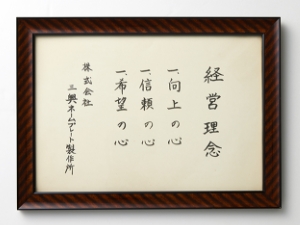 経営理念
一、向上の心
一、信頼の心
一、希望の心
株式会社
三興ネームプレート製作所